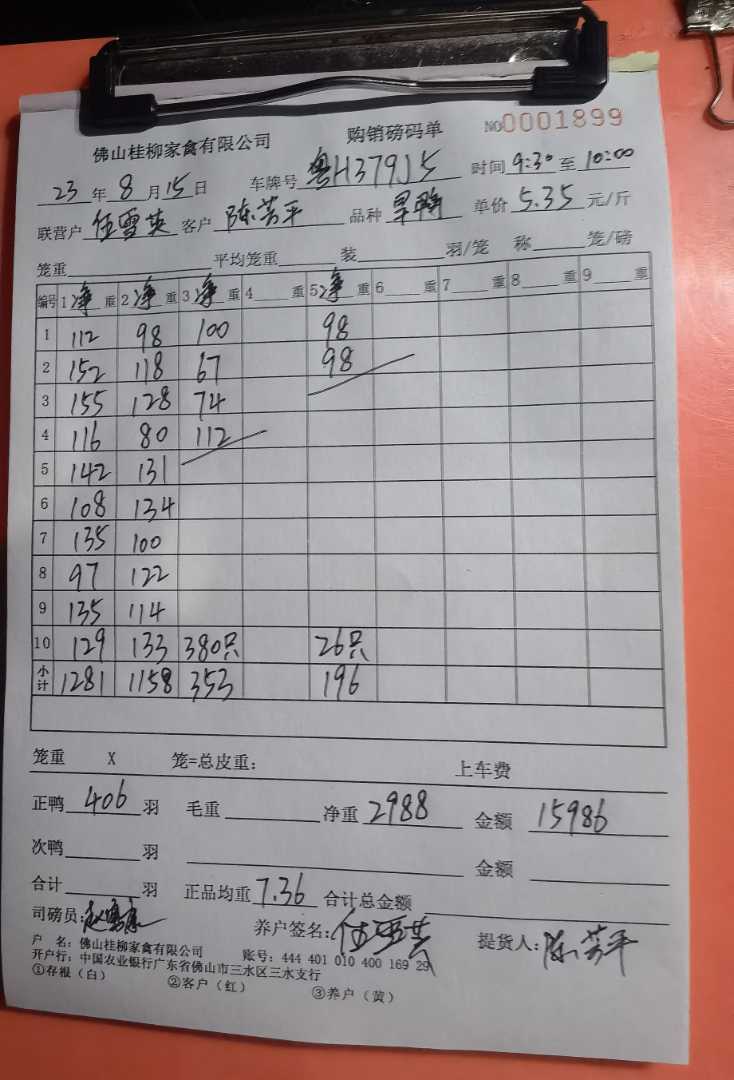 佛山桂柳家禽有限公司 购销磅码单 NO0001899
23年8月15日 车牌号 粤H379J5 时间 9:30 至 10:00
联营户 伍雪英 客户 陈芳平 品种 旱鸭 单价 5.35 元/斤
笼重 平均笼重 装 羽/笼 称 笼/磅
编号 1净重 2净重 3净重 4 重 5净重 6 重 7 重 8 重 9 重
1 112 98 100 98
2 152 118 67 98
3 155 128 74
4 116 80 112
5 142 131
6 108 134
7 135 100
8 97 122
9 135 114
10 129 133 380只 26只
小计 1281 1158 353 196
笼重 X 笼=总皮重: 上车费
正鸭 406 羽 毛重 净重 2988 金额 15986
次鸭 羽 金额
合计 羽 正品均重 7.36 合计总金额
司磅员: 养户签名: 提货人: 陈芳平
户 名: 佛山桂柳家禽有限公司 账号: 444 401 010 400 169 29
开户行: 中国农业银行广东省佛山市三水区三水支行
①存根(白) ②客户(红) ③养户(黄)